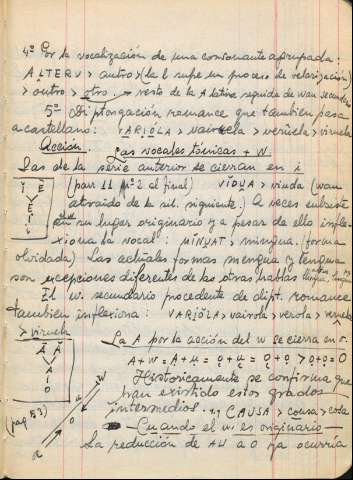 4º Por la vocalización de una consonante agrupada:
ALTERU > autro > (la l sufre un proceso de velarización)
> outro > otro. → resto de la A latina seguida de wau secundario
5º Diptongación romance que también pasa
a castellano: VARIOLA > vairuela > veruela > viruela
Acción. Las vocales tónicas + W.
Las de la serie anterior se cierran en i
(pass 11 nº 2 al final) VIDUA > viuda (wau
atraido de la sil. siguiente). A veces subsiste
en su lugar originario y a pesar de ello infle-
xiona la vocal: MINUAT > mingua. (forma
olvidada) Las actuales formas mengua y lengua
son excepciones diferentes de las otras hablas
El w. secundario procedente de dipt. romance
tambien inflexiona: VARIOLA > vairola > verola >
> viruela
La A por la acción del w se cierra en o.
A + W = A + u = o + u = o + o > o + o = o
Historicamente se confirma que
han existido estos grados
intermedios. CAUSA > cousa > cosa
(pag 53)
Cuando el w. es originario —
La reducción de AU a O ya ocurría